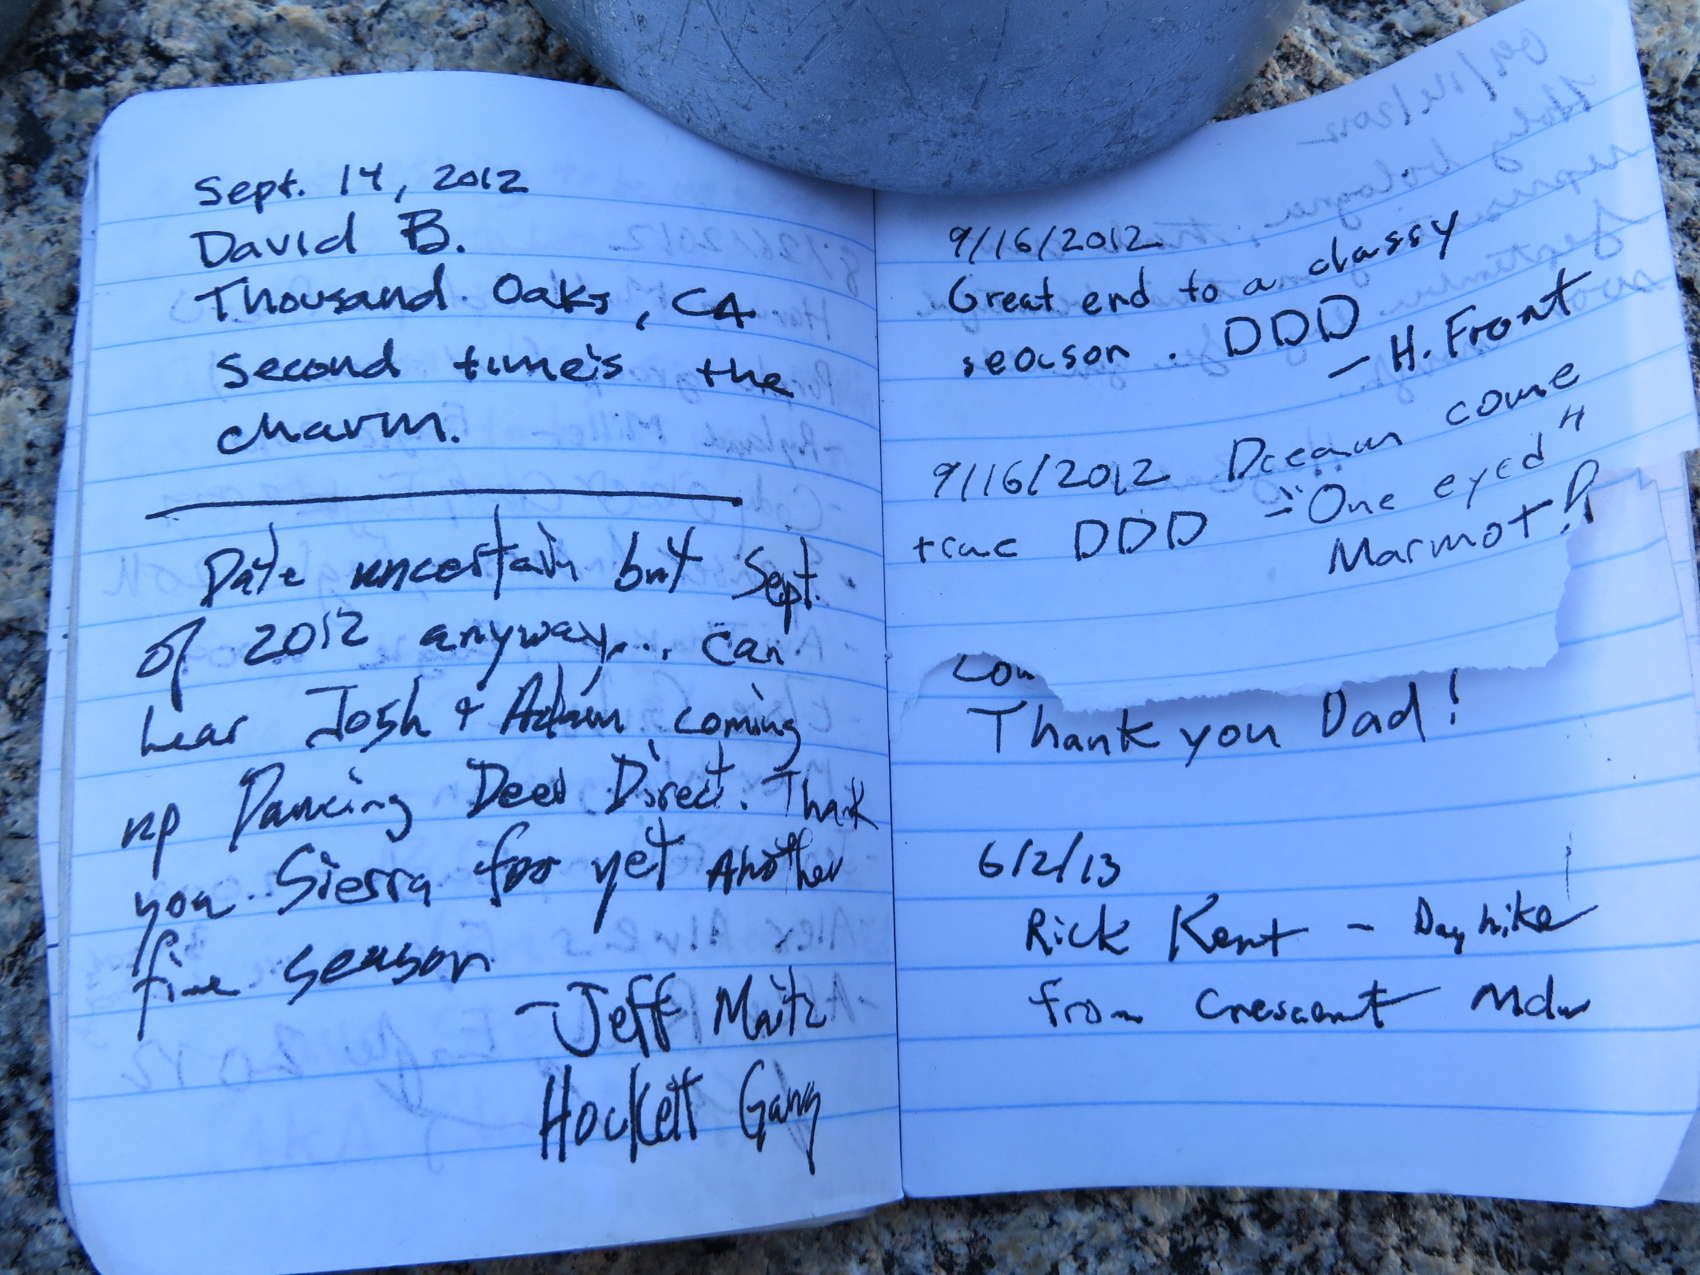 Sept. 14, 2012
David B.
Thousand Oaks, CA
second time's the
charm.
Date uncertain but Sept.
of 2012 anyway... can
hear Josh & Adam coming
up Dancing Deer Direct. Thank
you Sierra for yet Another
fine season
- Jeff Maitz
Hockett Gang
9/16/2012
Great end to a classy
season. DDD
- H. Front
9/16/2012 Dream come
true DDD - "One eyed"
Marmot!
Thank you Dad!
6/2/13
Rick Kent - Day hike
from Crescent Mdw